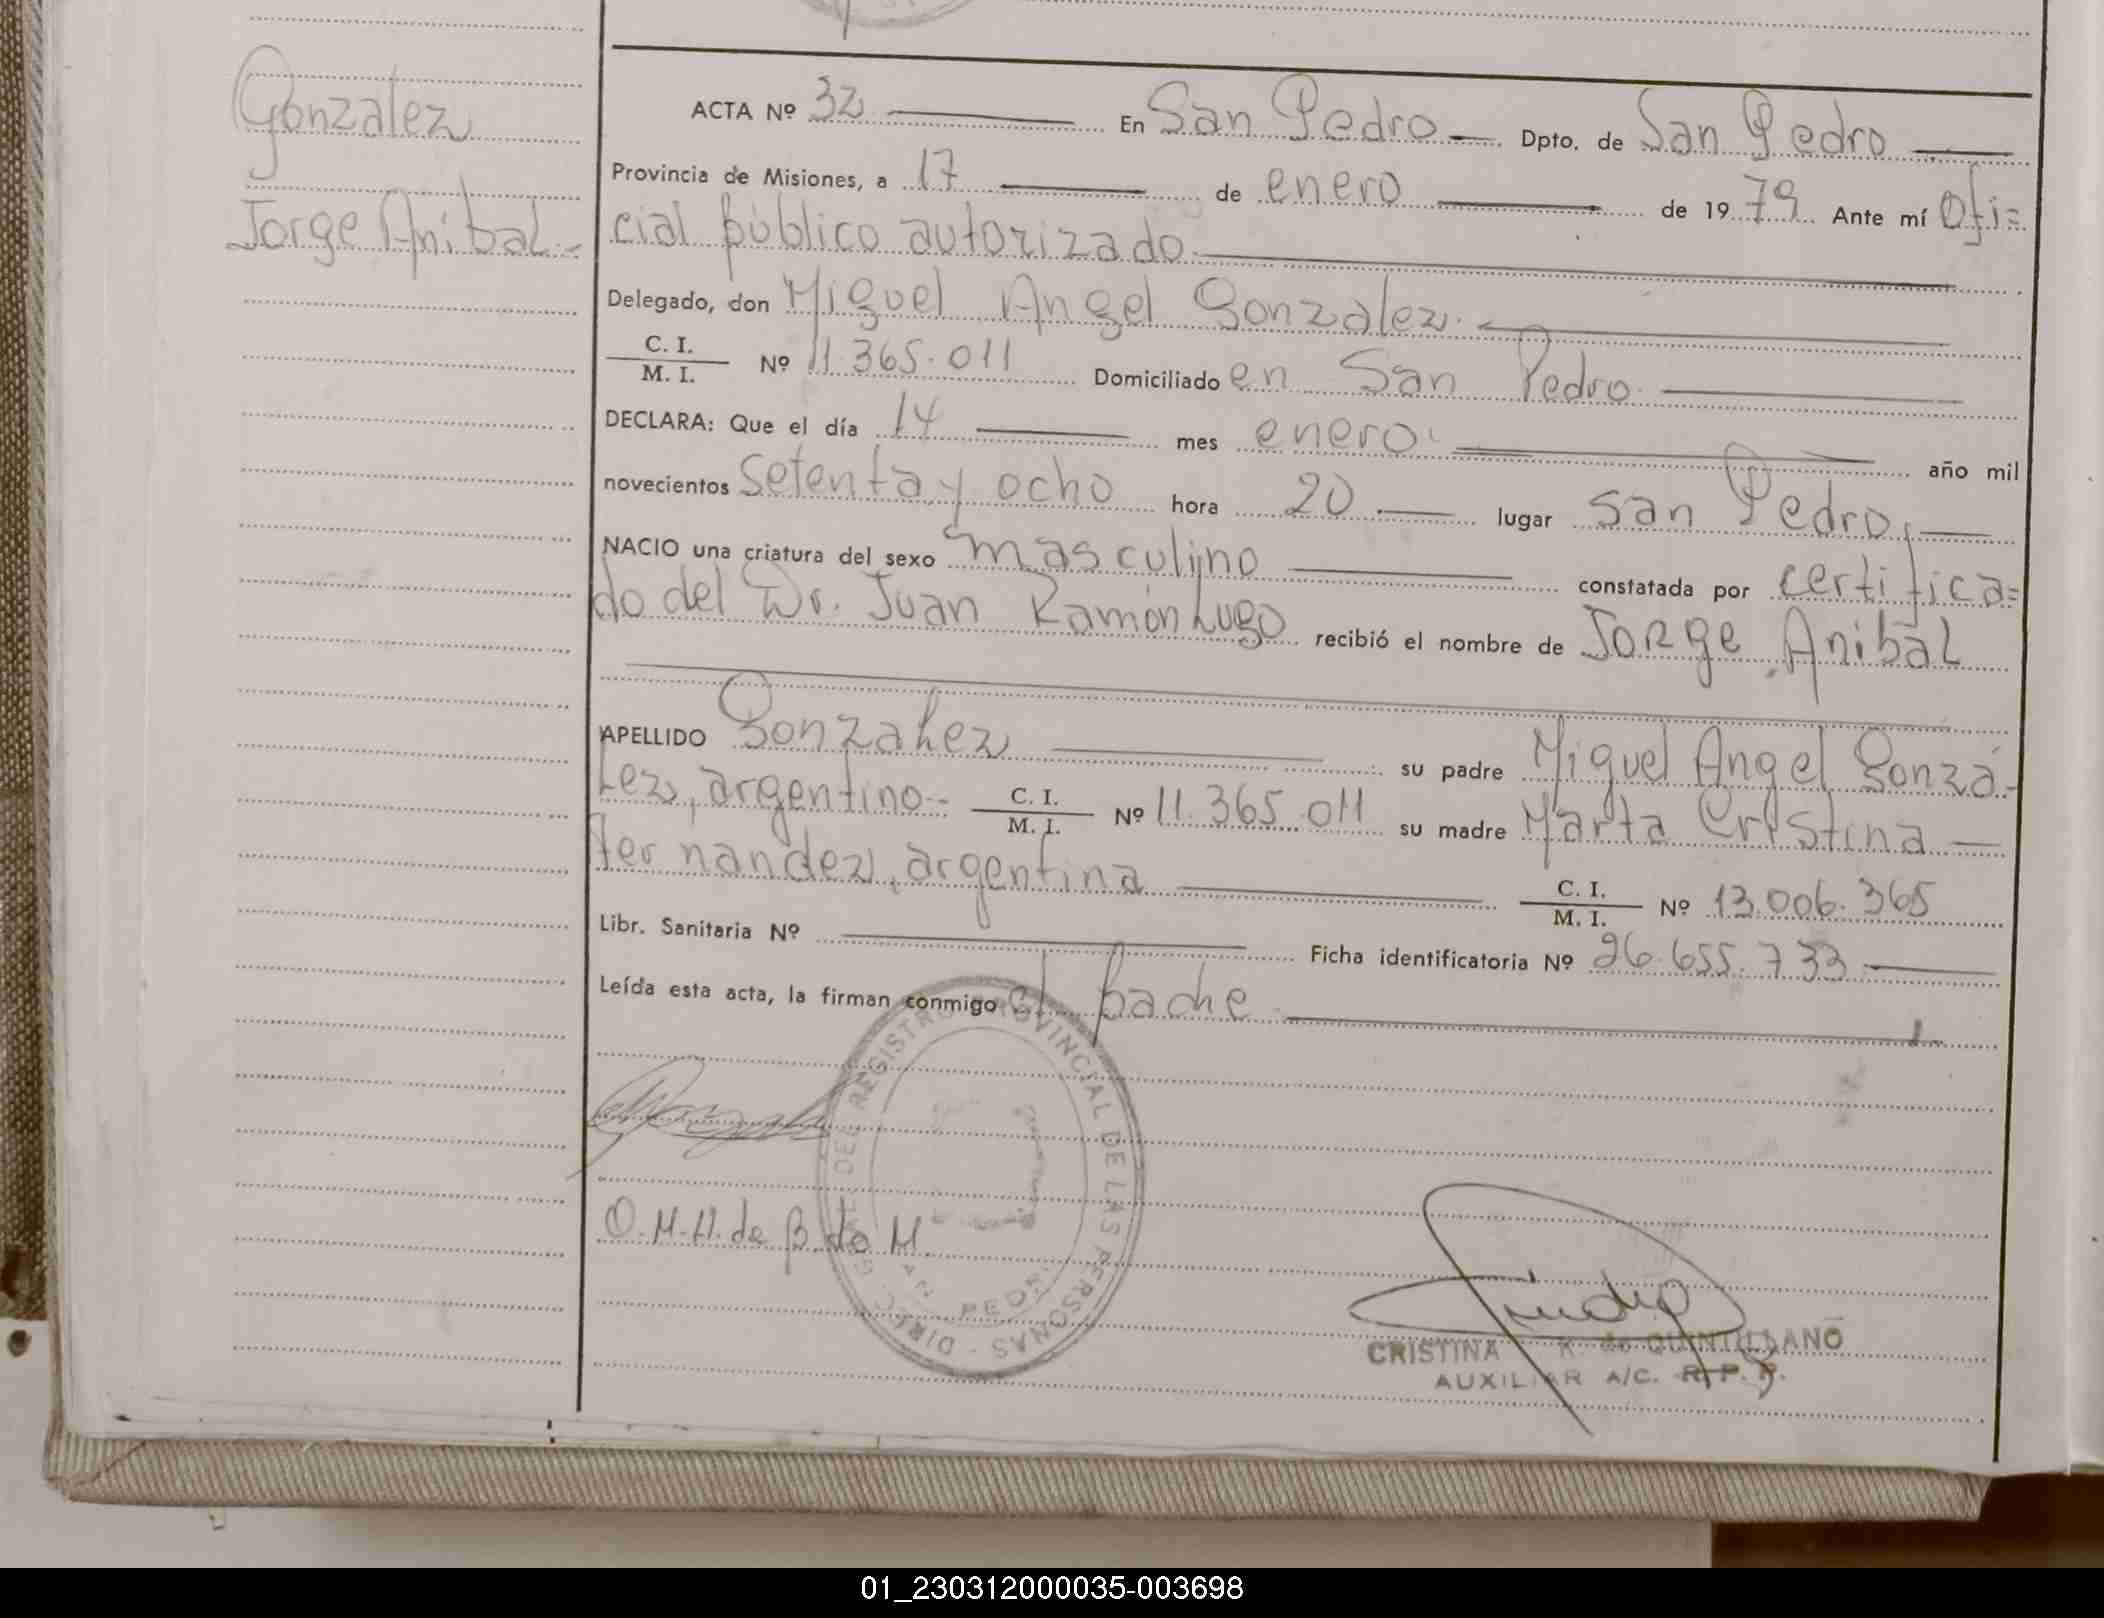 Gonzalez
Jorge Anibal.-
ACTA Nº 32 En San Pedro Dpto. de San Pedro
Provincia de Misiones, a 17 de enero de 1979 Ante mí Ofi=
cial público autorizado
Delegado, don Miguel Angel Gonzalez.
C. I.
M. I. Nº 11.365.011 Domiciliado en San Pedro
DECLARA: Que el día 14 mes enero año mil
novecientos setenta y ocho hora 20 lugar San Pedro,
NACIO una criatura del sexo masculino constatada por certifica=
do del Dr. Juan Ramón Lugo recibió el nombre de Jorge Anibal
APELLIDO Gonzalez su padre Miguel Angel Gonzá-
lez, argentino- C. I.
M. I. Nº 11.365.011 su madre Marta Cristina
Fernandez, argentina C. I.
M. I. Nº 13.006.365
Libr. Sanitaria Nº Ficha identificatoria Nº 26.655.733
Leída esta acta, la firman conmigo el padre
O.M.H. de B. do M.
DIREC. GRAL. DEL REGISTRO PROVINCIAL DE LAS PERSONAS -
SAN PEDRO
CRISTINA K. de QUINTILLANO
AUXILIAR A/C. R. P. P.
01_230312000035-003698